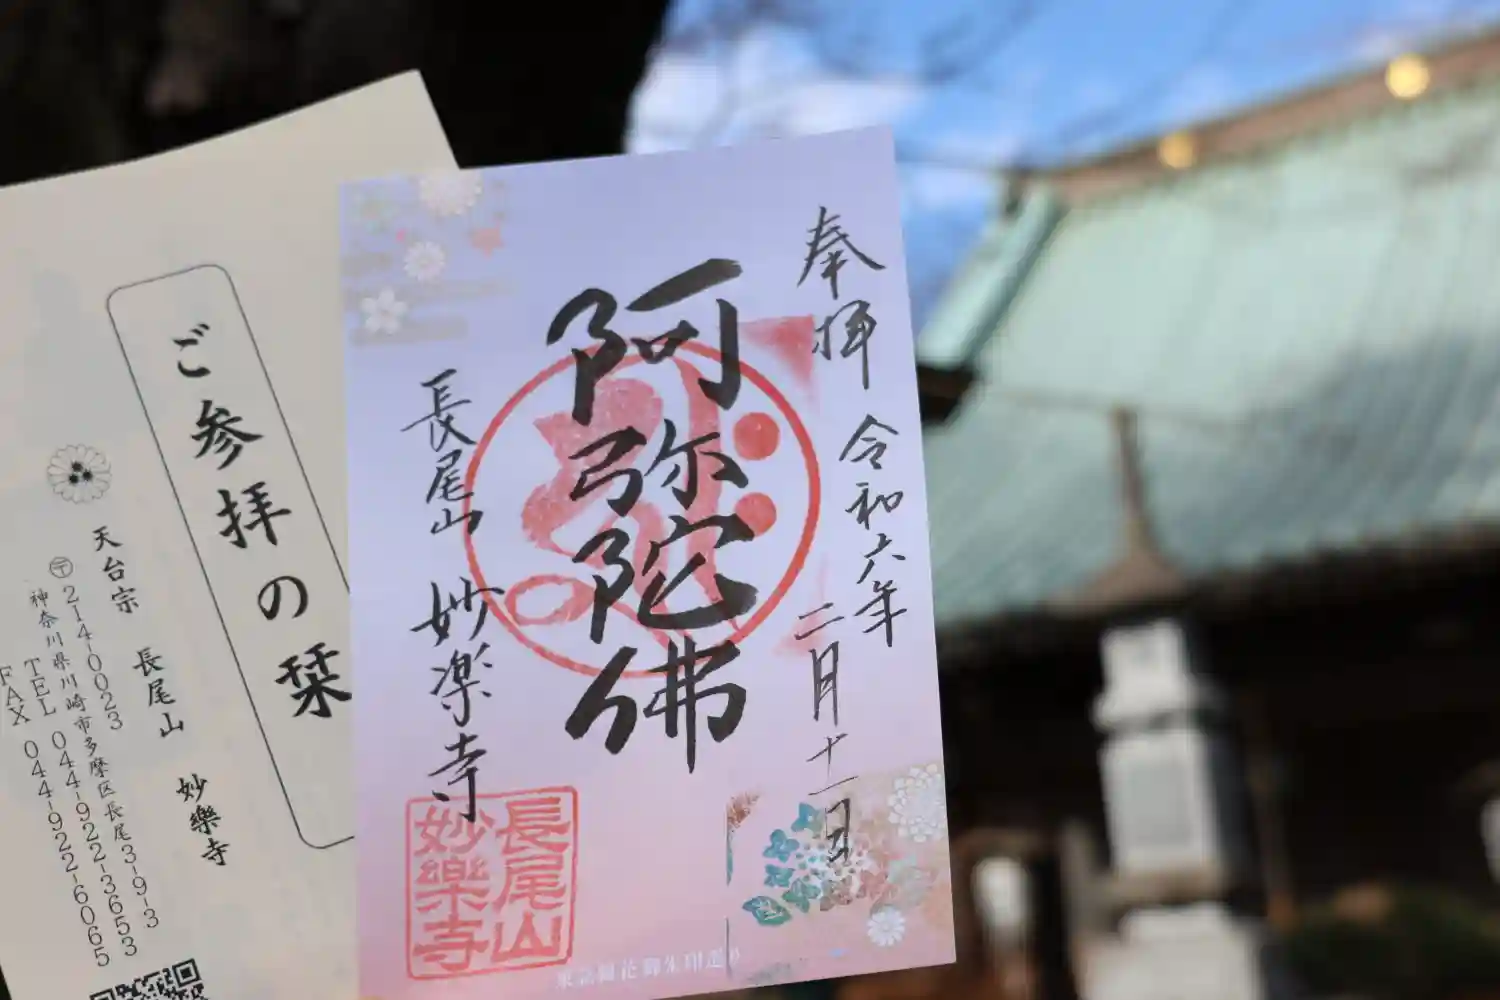 奉拝
令和六年
二月十一日
阿弥陀佛
長尾山 妙楽寺
長尾山
妙樂寺
ご参拝の栞
天台宗 長尾山 妙樂寺
〒214-0023
神奈川県川崎市多摩区長尾3-9-3
TEL 044-922-3653
FAX 044-922-6065